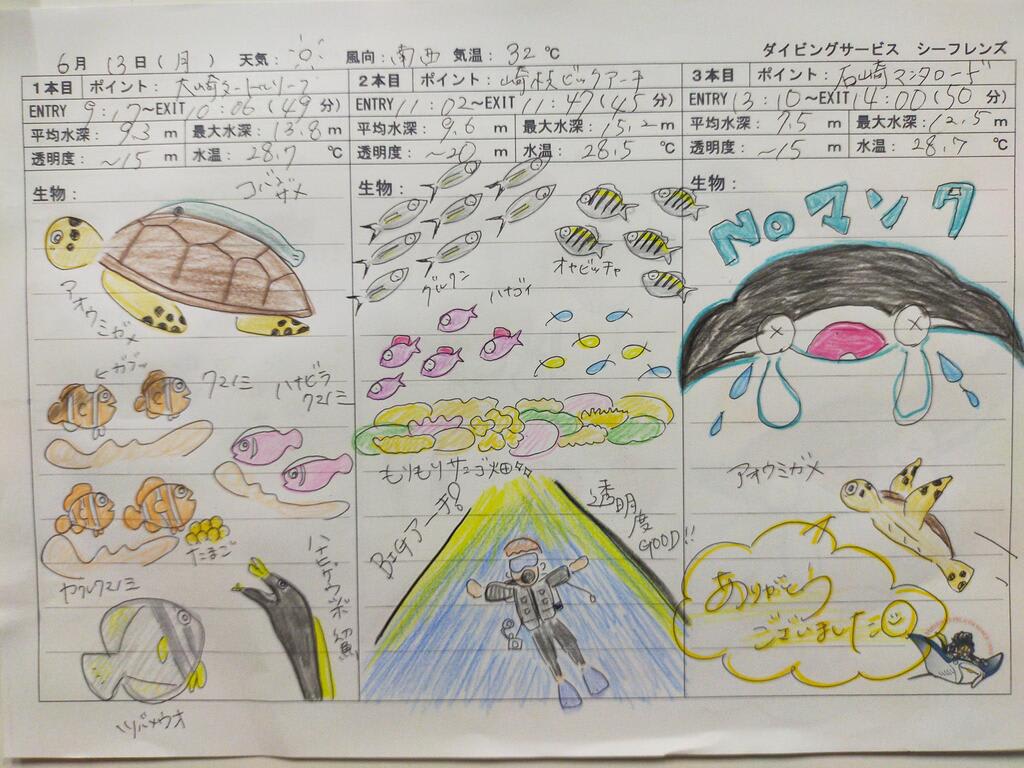 6月 13日(月) 天気: 風向:南西 気温:32℃
ダイビングサービス シーフレンズ
1本目 ポイント:大崎タートルリーフ
ENTRY 9:17~EXIT 10:06(49分)
平均水深:9.3m 最大水深:13.8m
透明度:~15m 水温:28.7℃
生物:
コバンザメ
アオウミガメ
←ガブッ
クマノミ
ハナビラ
クマノミ
たまご
カクレクマノミ
ハナヒゲウツボ 幼魚
ツバメウオ
2本目 ポイント:崎枝ビッグアーチ
ENTRY 11:02~EXIT 11:47(45分)
平均水深:9.6m 最大水深:15.2m
透明度:~20m 水温:28.5℃
生物:
グルクン
オヤビッチャ
ハナゴイ
もりもりサンゴ畑
BIGアーチ!
透明度
GOOD!!
3本目 ポイント:石崎マンタロード
ENTRY 13:10~EXIT 14:00(50分)
平均水深:7.5m 最大水深:12.5m
透明度:~15m 水温:28.7℃
生物:
Noマンタ
アオウミガメ
ありがとう
ございました